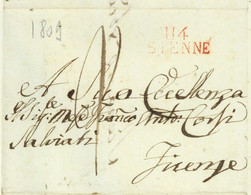 1809
114
SIENNE
A Sua Eccellenza
Il Sig.e M.se Franco Anto: Corsi
Salviati
Firenze